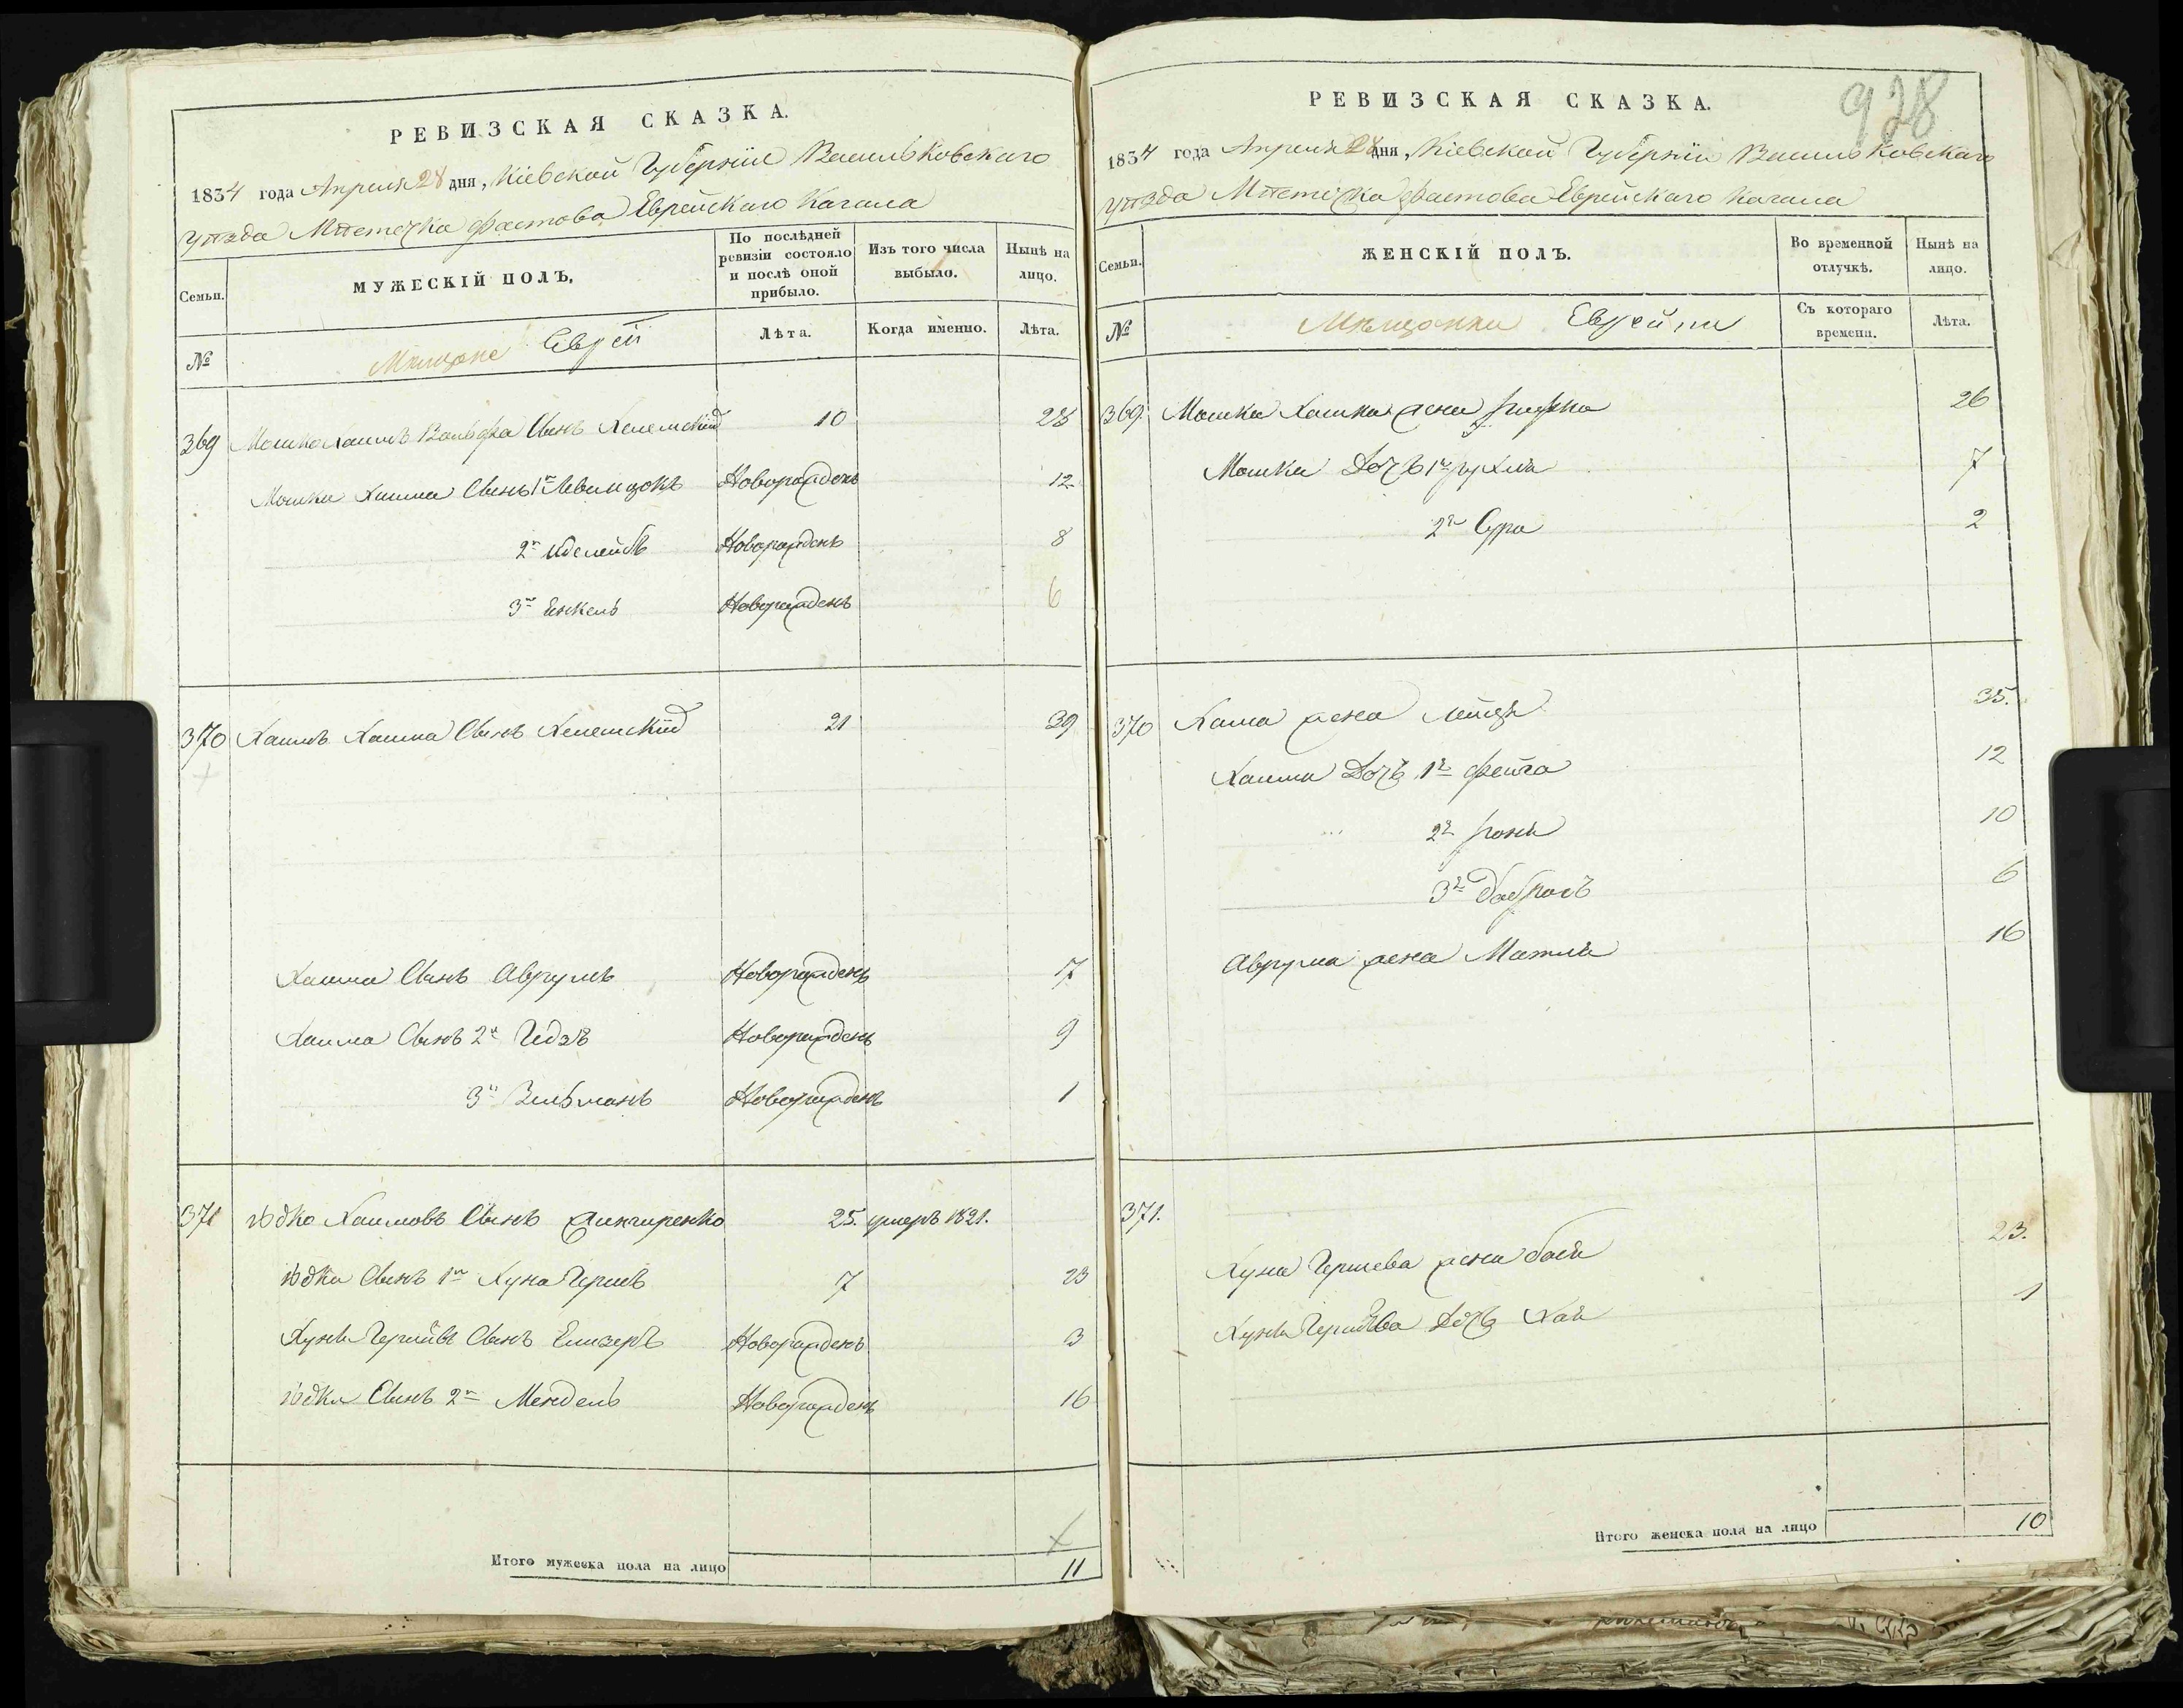 РЕВИЗСКАЯ СКАЗКА.
1834 года Апреля 28 дня, Кіевской Губерніи Васильковскаго
уѣзда Мѣстечка Фастова Еврейскаго Кагала
Семьи. МУЖЕСКІЙ ПОЛЪ, По послѣдней ревизіи состояло и послѣ оной прибыло. Изъ того числа выбыло. Нынѣ на лицо.
№ Мещане Евреи Лѣта. Когда именно. Лѣта.
369 Мошко Хаимъ Вольфа Сынъ 10 28
Мошка Хаима Сынъ 1й Новорожденъ 12
2й Новорожденъ 8
3й Енкель Новорожденъ 6
370 Хаимъ Хаима Сынъ 21 39
Хаима Сынъ Аврумъ Новорожденъ 17
Хаима Сынъ 2й Новорожденъ 9
3й Зельманъ Новорожденъ 1
371 Хаимовъ Сынъ 25. умеръ 1821.
Сынъ 1й Хуна Гершъ 7 23
Хуны Сынъ Елизеръ Новорожденъ 3
Сынъ 2й Мендель Новорожденъ 16
Итого мужеска пола на лицо 11
928
РЕВИЗСКАЯ СКАЗКА.
1834 года Апреля 28 дня, Кіевской Губерніи Васильковскаго
уѣзда Мѣстечка Фастова Еврейскаго Кагала
Семьи. ЖЕНСКІЙ ПОЛЪ. Во временной отлучкѣ. Нынѣ на лицо.
№ Мещанки Еврейки Съ котораго времени. Лѣта.
369. Мошка Хаима жена 26
Мошки Дочь 1я Рухля 7
2я Сура 2
370 Хаима жена 35.
Хаима Дочь 1я Фейга 12
2я 10
3я 6
Аврума жена Матля 16
371.
Хуна Гершева жена Бася 23.
Хуны Гершова Дочь Хая 1
Итого женска пола на лицо 10